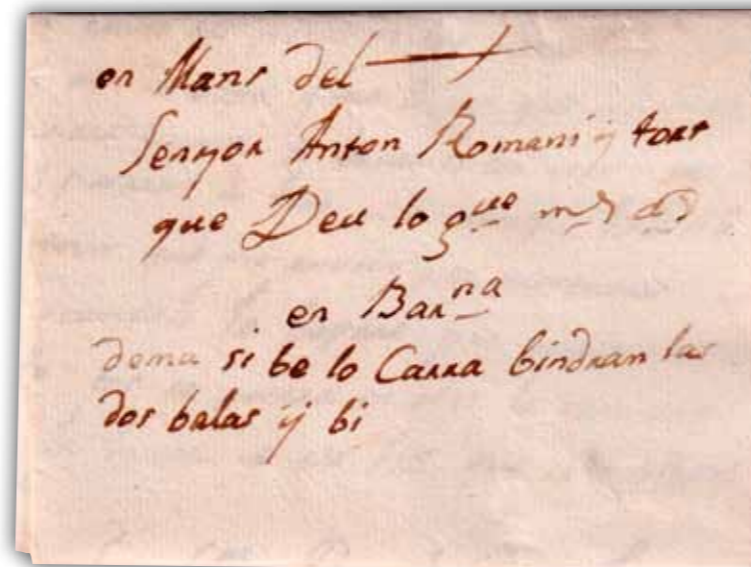 en Mans del
Senyor Anton Romani y tort
que Deu lo gue ms as
en Barna
dema si be lo Carra bindran las
dos balas y bi